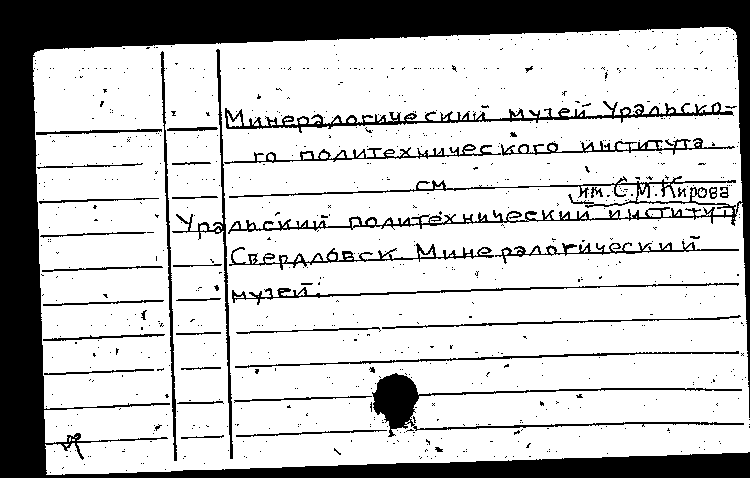 Минералогический музей Уральско-
го политехнического института.
см
им. С.М. Кирова
Уральский политехнический институт
Свердловск. Минералогический
музей.